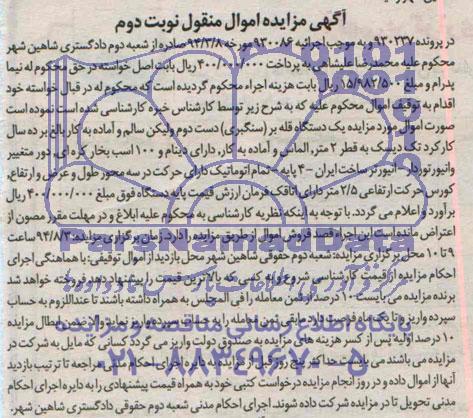 آگهی مزایده اموال منقول نوبت دوم
در پرونده ۹۳۰۲۳۷ و به موجب اجرائیه ۹۳۰۰۸۶ مورخه ۹۴/۳/۸ صادره از شعبه دوم دادگستری شاهین شهر
محکوم علیه محمدرضا علیشاهی به پرداخت ۴۰۰/۰۰۰/۰۰۰ ریال بابت اصل خواسته در حق محکوم له نیما
پدرام و مبلغ ۱۵/۹۸۲/۵۰۰ ریال بابت هزینه اجراء محکوم گردیده است که محکوم له در قبال خواسته خود
اقدام به توقیف اموال محکوم علیه که به شرح زیر توسط کارشناس خبره کارشناسی شده است نموده است
صورت اموال مورد مزایده یک دستگاه قله بر (سنگبری) دست دوم ولیکن سالم و آماده به کار بالغ بر ده سال
کارکرد تک دیسک به قطر ۲ متر، الماس و آماده به کار، دارای دینام و ۱۰۰ اسب بخار کره ای، دور متغییر
وانیورتوردار - انیورتر ساخت ایران - ۴ پایه - تمام اتوماتیک دارای حرکت در سه محور طول و عرض و ارتفاع،
کورس حرکت ارتفاعی ۲/۵ متر دارای اتاقک فرمان ارزش قیمت پایه دستگاه فوق مبلغ ۴۰۰/۰۰۰/۰۰۰ ریال
برآورد و اعلام می گردد. با توجه به اینکه نظریه کارشناسی به محکوم علیه ابلاغ و در مهلت مقرر مصون از
اعتراض مانده است این اجراء قصد فروش اموال از طریق مزایده را دارد. زمان برگزاری مزایده: ۹۴/۸/۳ ساعت
۹ تا ۱۰ محل برگزاری مزایده: شعبه دوم حقوقی شاهین شهر محل بازدید از اموال توقیفی: با هماهنگی اجرای
احکام مزایده از قیمت کارشناسی شروع و به کسی که بالاترین قیمت را پیشنهاد دهد فروخته خواهد شد
برنده مزایده می بایست ۱۰ درصد از ثمن معامله را فی المجلس به همراه داشته باشند تا عنداللزوم به حساب
سپرده واریز و تا یک ماه فرصت دارد مابقی ثمن معامله را به حساب سپرده واریز نماید والا ضمن ابطال مزایده
۱۰ درصد اولیه پس از کسر هزینه های مزایده به صندوق دولت واریز می گردد کسانی که مایل به شرکت در
مزایده می باشند می بایست حداکثر پنج روز قبل از مزایده به دایره اجرای احکام مدنی مراجعه تا ترتیب بازدید
آنها از اموال داده و در روز انجام مزایده درخواست کتبی خود به همراه قیمت پیشنهادی را به دایره اجرای احکام
مدنی تحویل تا در مزایده شرکت داده شوند. اجرای احکام مدنی شعبه دوم حقوقی دادگستری شاهین شهر.
پایگاه اطلاع رسانی مناقصه و مزایده
۰۲۱-۸۸۳۴۹۶۷۰-۵